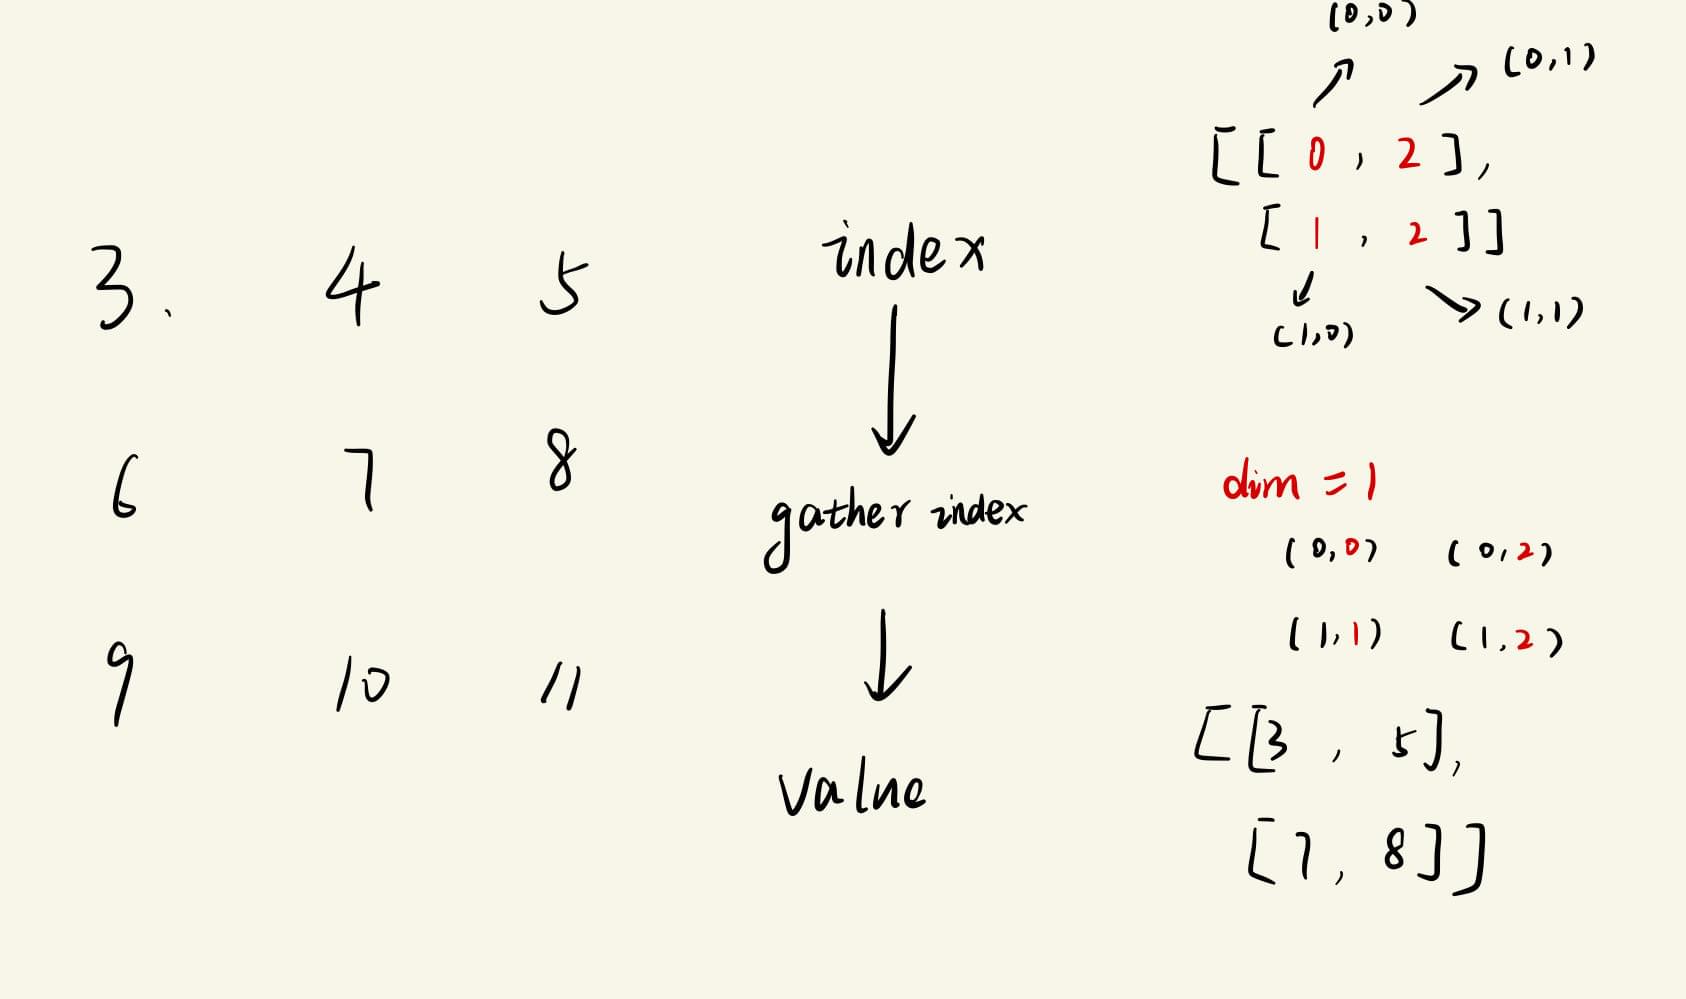 3. 4 5
6 7 8
9 10 11
index
gather index
value
(0,0)
(0,1)
[[0, 2],
[1, 2]]
(1,0)
(1,1)
dim = 1
(0,0) (0,2)
(1,1) (1,2)
[[3, 5],
[7, 8]]